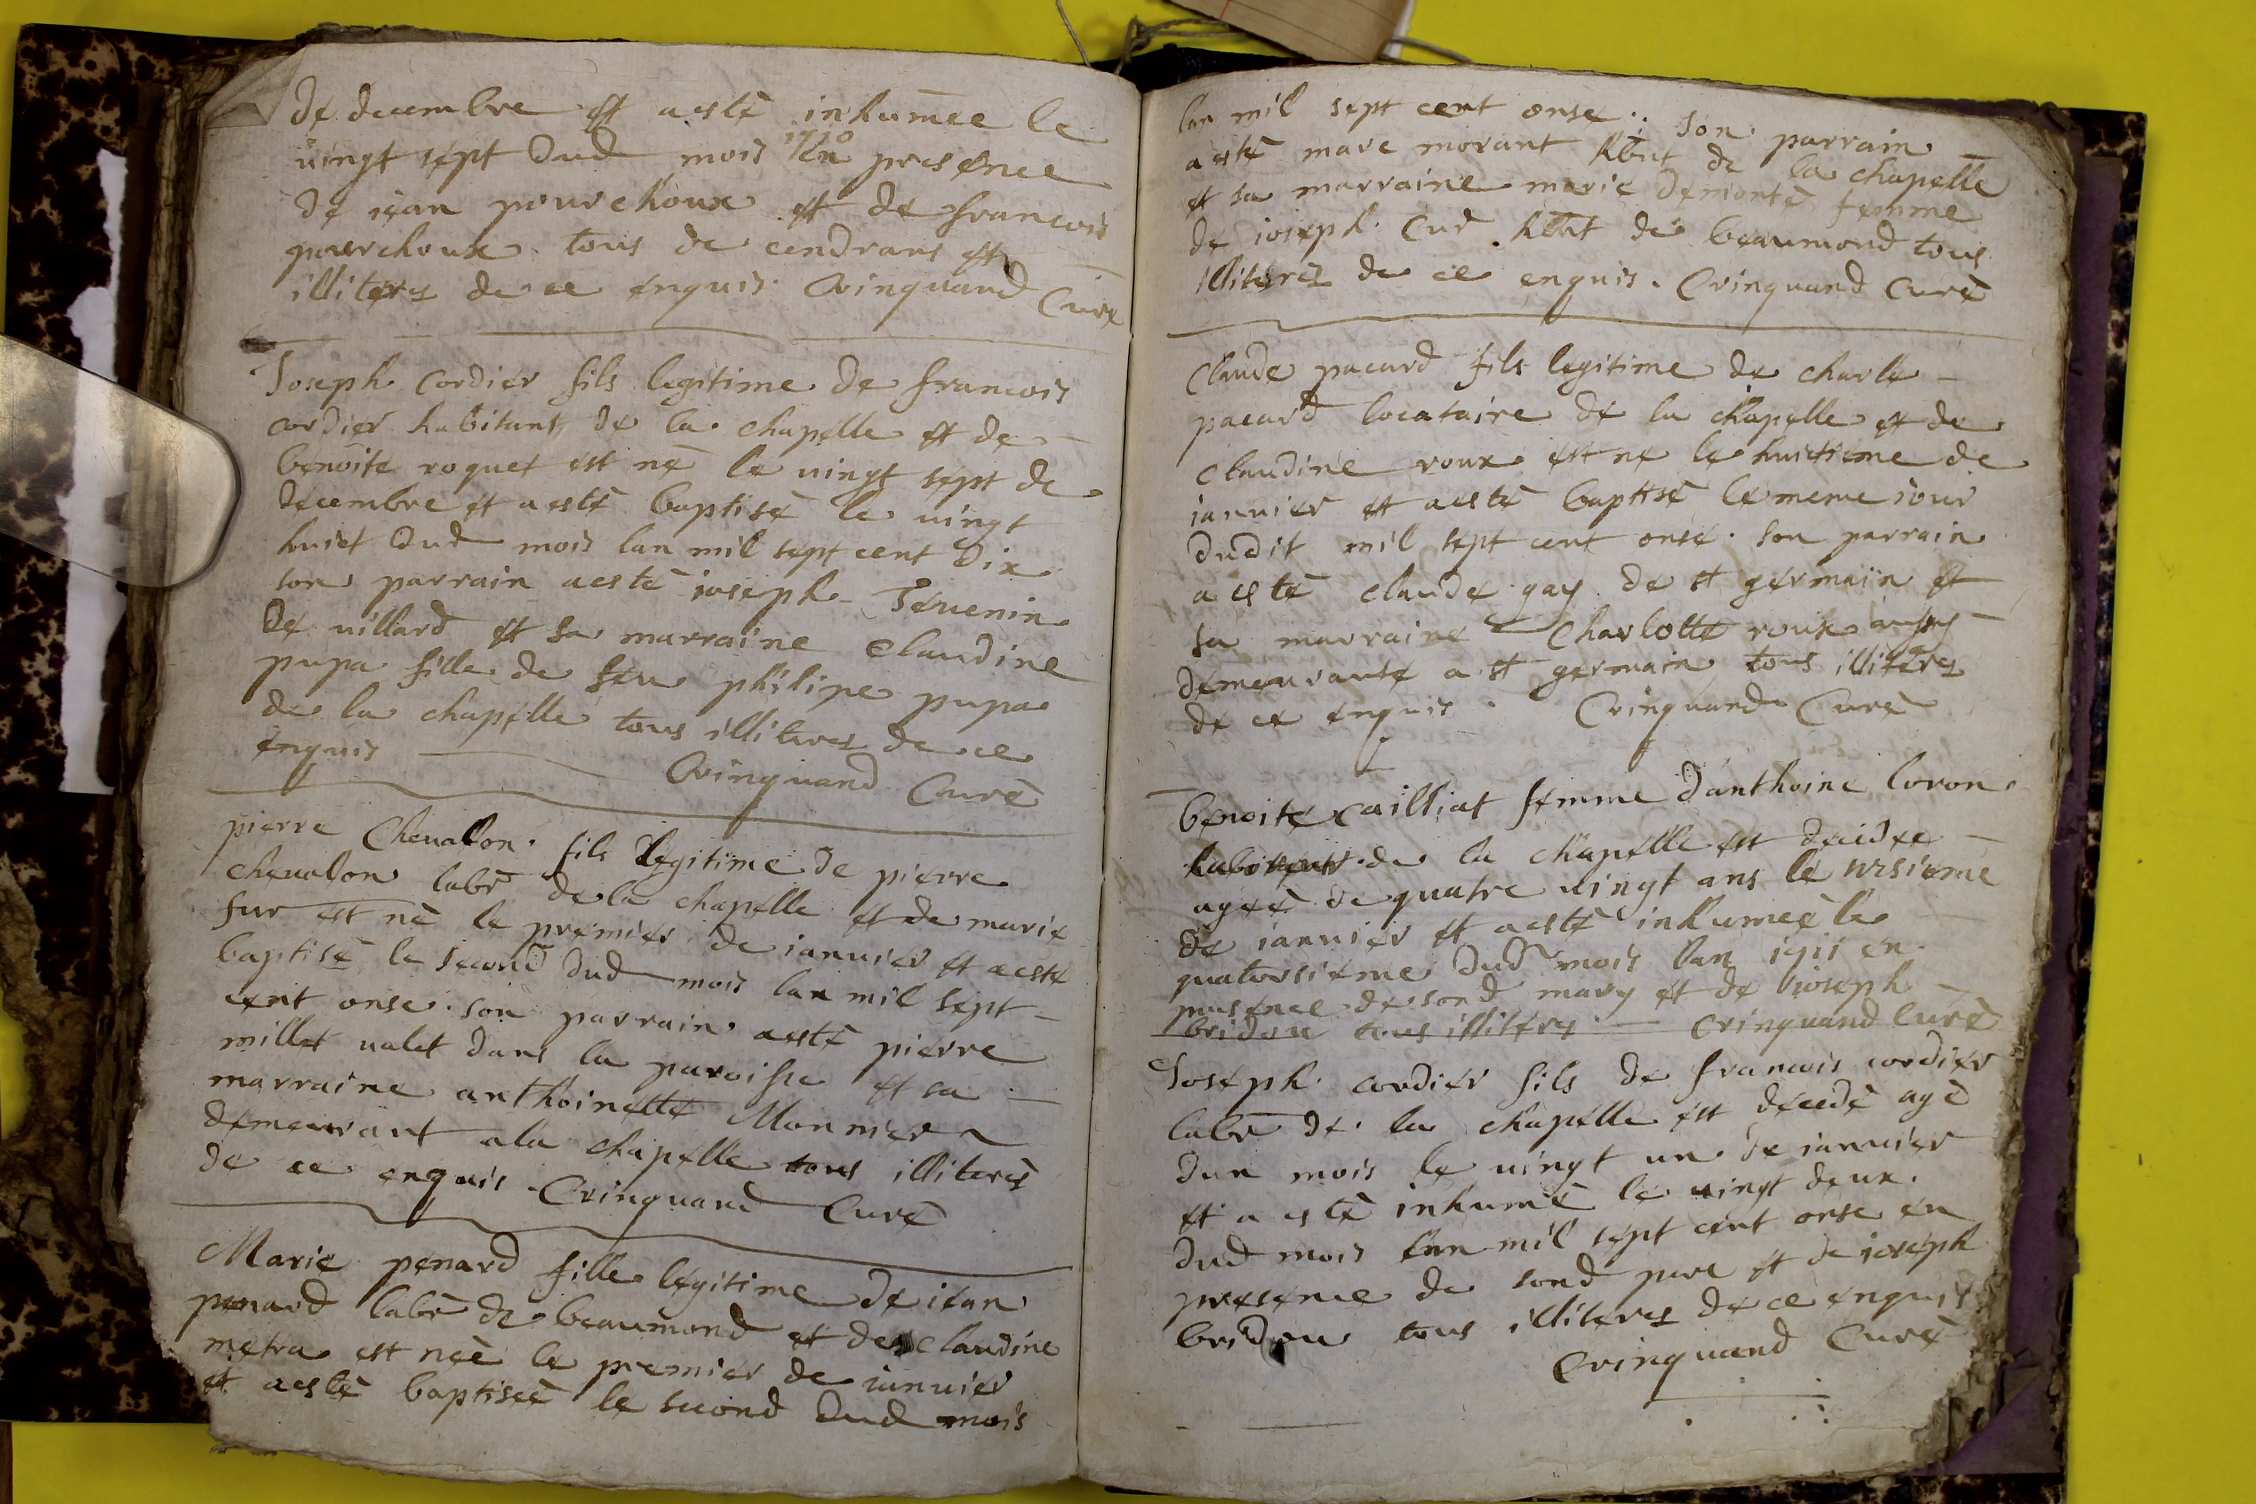 de decembre et a esté inhumee le
vingt sept dud mois 1710 en presence
de iean pourchoux et de francois
pourchoux tous de cendrans et
illiteres de ce enquis. Crinquand Curé
Joseph cordier fils legitime de francois
cordier habitant de la chapelle et de
benoite roquet est né le vingt sept de
decembre et a esté baptisé le vingt
huict dud mois lan mil sept cent dix
son parrain a esté ioseph Teuenin
de villard et sa marraine Claudine
pupa fille de feu philipe pupa
de la chapelle tous illiteres de ce
enquis Crinquand Curé
pierre Cheualon fils legitime de pierre
cheualon labr de la chapelle et de marie
fur est né le premier de ianvier et a esté
baptisé le second dud mois lan mil sept
cent onse. son parrain a esté pierre
millet valet dans la paroisse et sa
marraine anthoinette Monnier
demeurant a la chapelle tous illiterés
de ce enquis. Crinquand Curé
Marie penard fille legitime de iean
penard labr de beaumond et de claudine
metra est neé le premier de ianvier
et a esté baptiseé le second dud mois
lan mil sept cent onse. son parrain
a esté marc morant hbnt de la chapelle
et sa marraine marie demonté femme
de ioseph Cud hbnt de beaumond tous
illiterés de ce enquis. Crinquand Curé
Claude pacard fils legitime de charle
pacard locataire de la chapelle et de
Claudine roux est ne le huictieme de
ianvier et a esté baptisé le meme iour
dudit mil sept cent onse. son parrain
a esté claude gay de st germain et
sa marraine Charlotte roux aussy
demeurante a st germain tous illiteres
de ce enquis. Crinquand Curé
benoite cailliat femme danthoine loron
de la chapelle est decidee
ageé de quatre vingt ans le
de ianvier et a esté inhumeé le
quatorsieme dud mois lan 1711 en
presence de sond mary et de ioseph
bridon tous illiteres Crinquand Curé
Joseph cordier fils de francois cordier
labr de la chapelle est decedé agé
dun mois le vingt un de ianvier
et a esté inhumé le vingt deux
dud mois lan mil sept cent onse en
presence de sond pere et de ioseph
bridon tous illiteres de ce enquis
Crinquand Curé